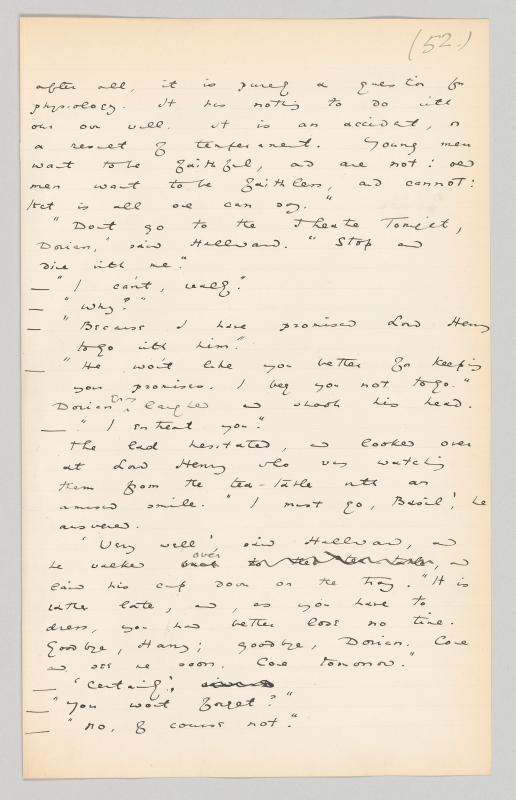 (52.)
after all, it is purely a question for
physiology. It has nothing to do with
our own will. It is an accident, or
a result of temperament. Young men
want to be faithful, and are not: old
men want to be faithless, and cannot:
that is all one can say."
"Dont go to the Theatre Tonight,
Dorian," said Hallward. "Stop and
dine with me."
— "I can't, really."
— "Why?"
— "Because I have promised Lord Henry
to go with him."
— "He won't like you better for keeping
your promises. I beg you not to go."
Dorian Gray laughed and shook his head.
— "I entreat you."
The lad hesitated, and looked over
at Lord Henry who was watching
them from the tea-table with an
amused smile. "I must go, Basil", he
answered.
"Very well", said Hallward, and
he walked over to the tea-table, and
laid his cup down on the tray. "It is
rather late, and, as you have to
dress, you had better lose no time.
Goodbye, Harry; goodbye, Dorian. Come
and see me soon. Come tomorrow."
— "Certainly",
— "You wont forget?"
— "No, of course not."